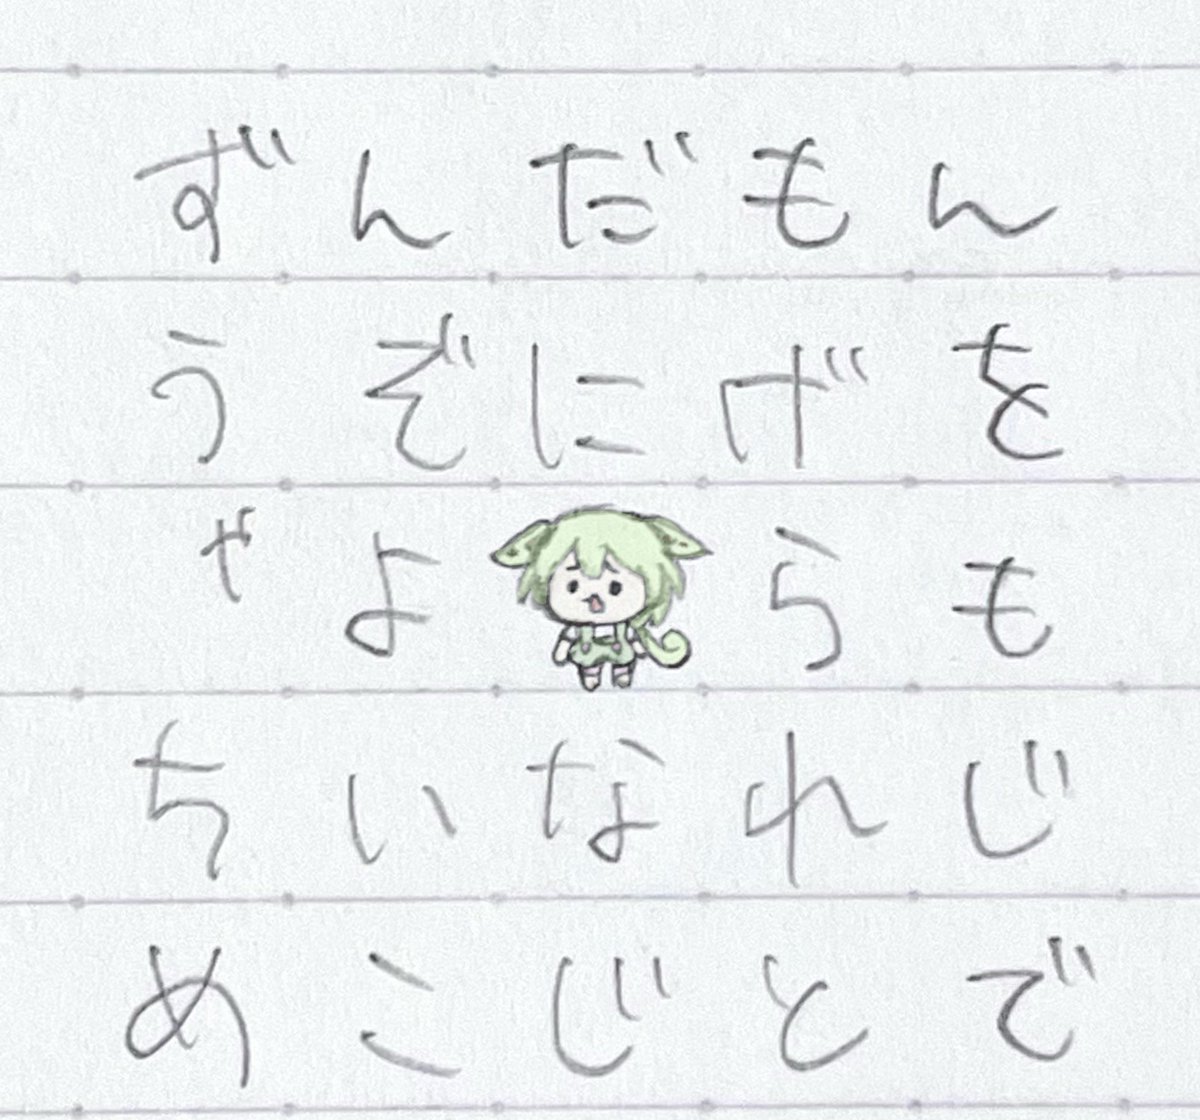 ずんだもん
うぞにげを
ゃよらも
ちいなれじ
めこじとで